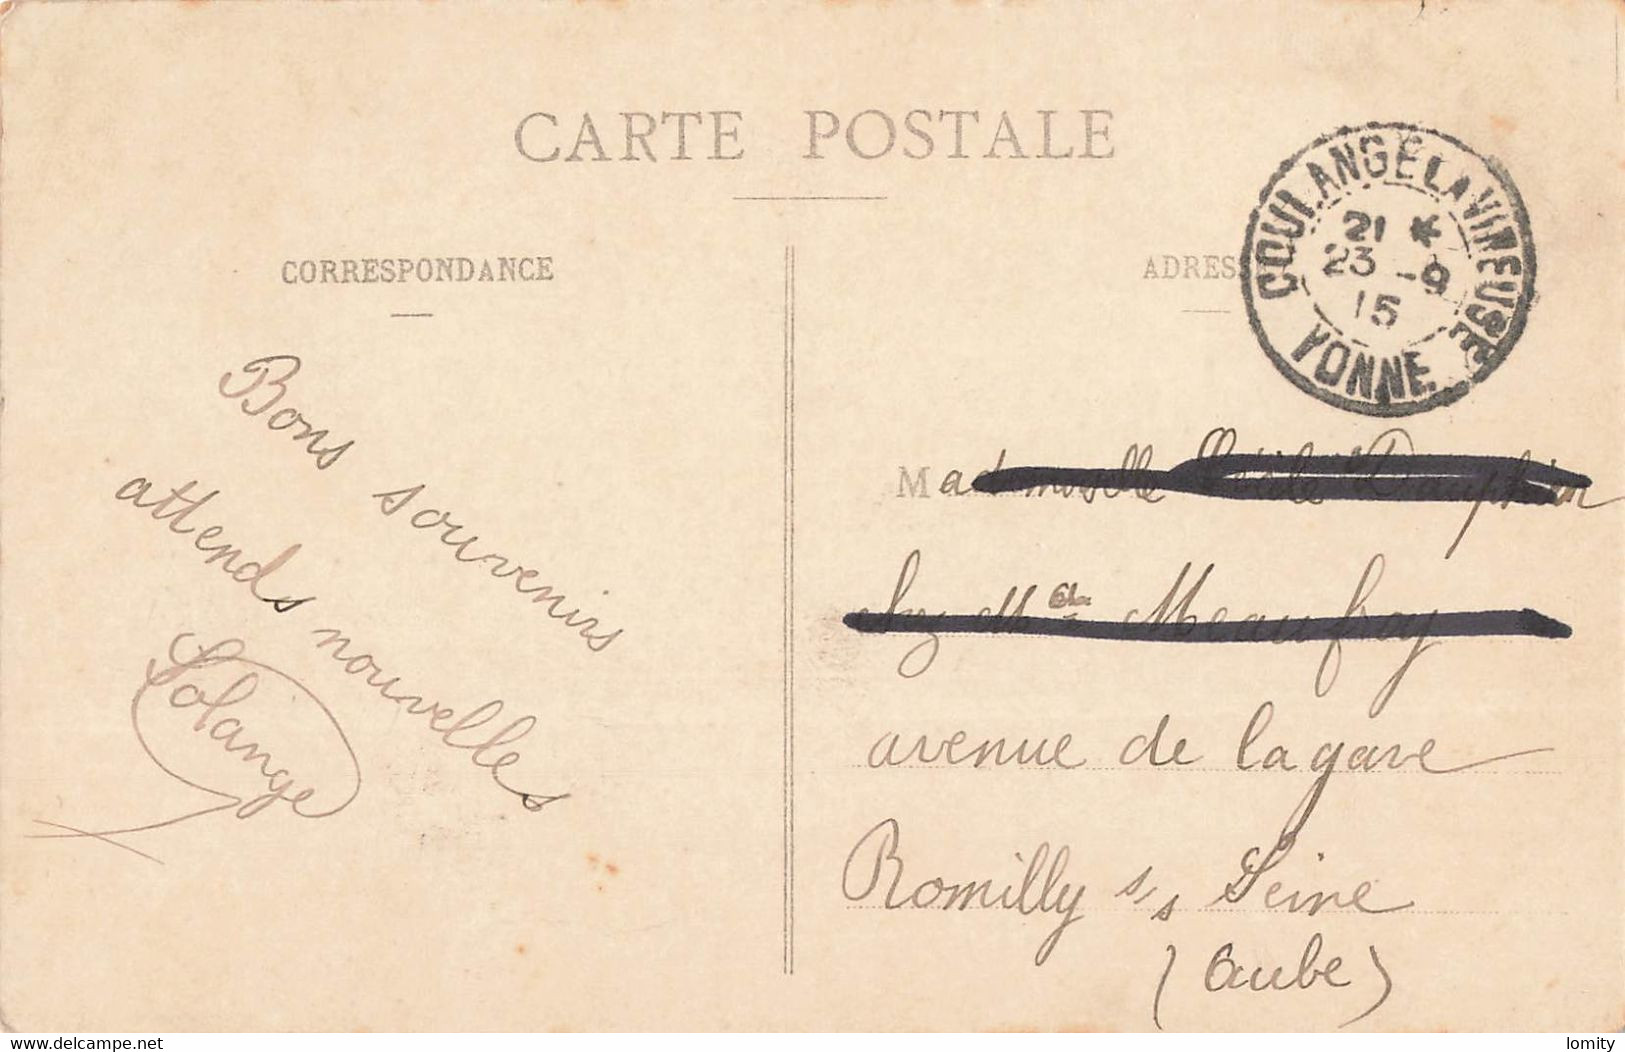 CARTE POSTALE
CORRESPONDANCE
ADRESS
COULANGE LA VINEUSE
21 *
23 -9
15
YONNE
Bons souvenirs
attends nouvelles
Solange
Mademoiselle Dauphin
chez Meaufroy
avenue de la gare
Romilly s/s Seine
(Aube)
www.delcampe.net
lomity